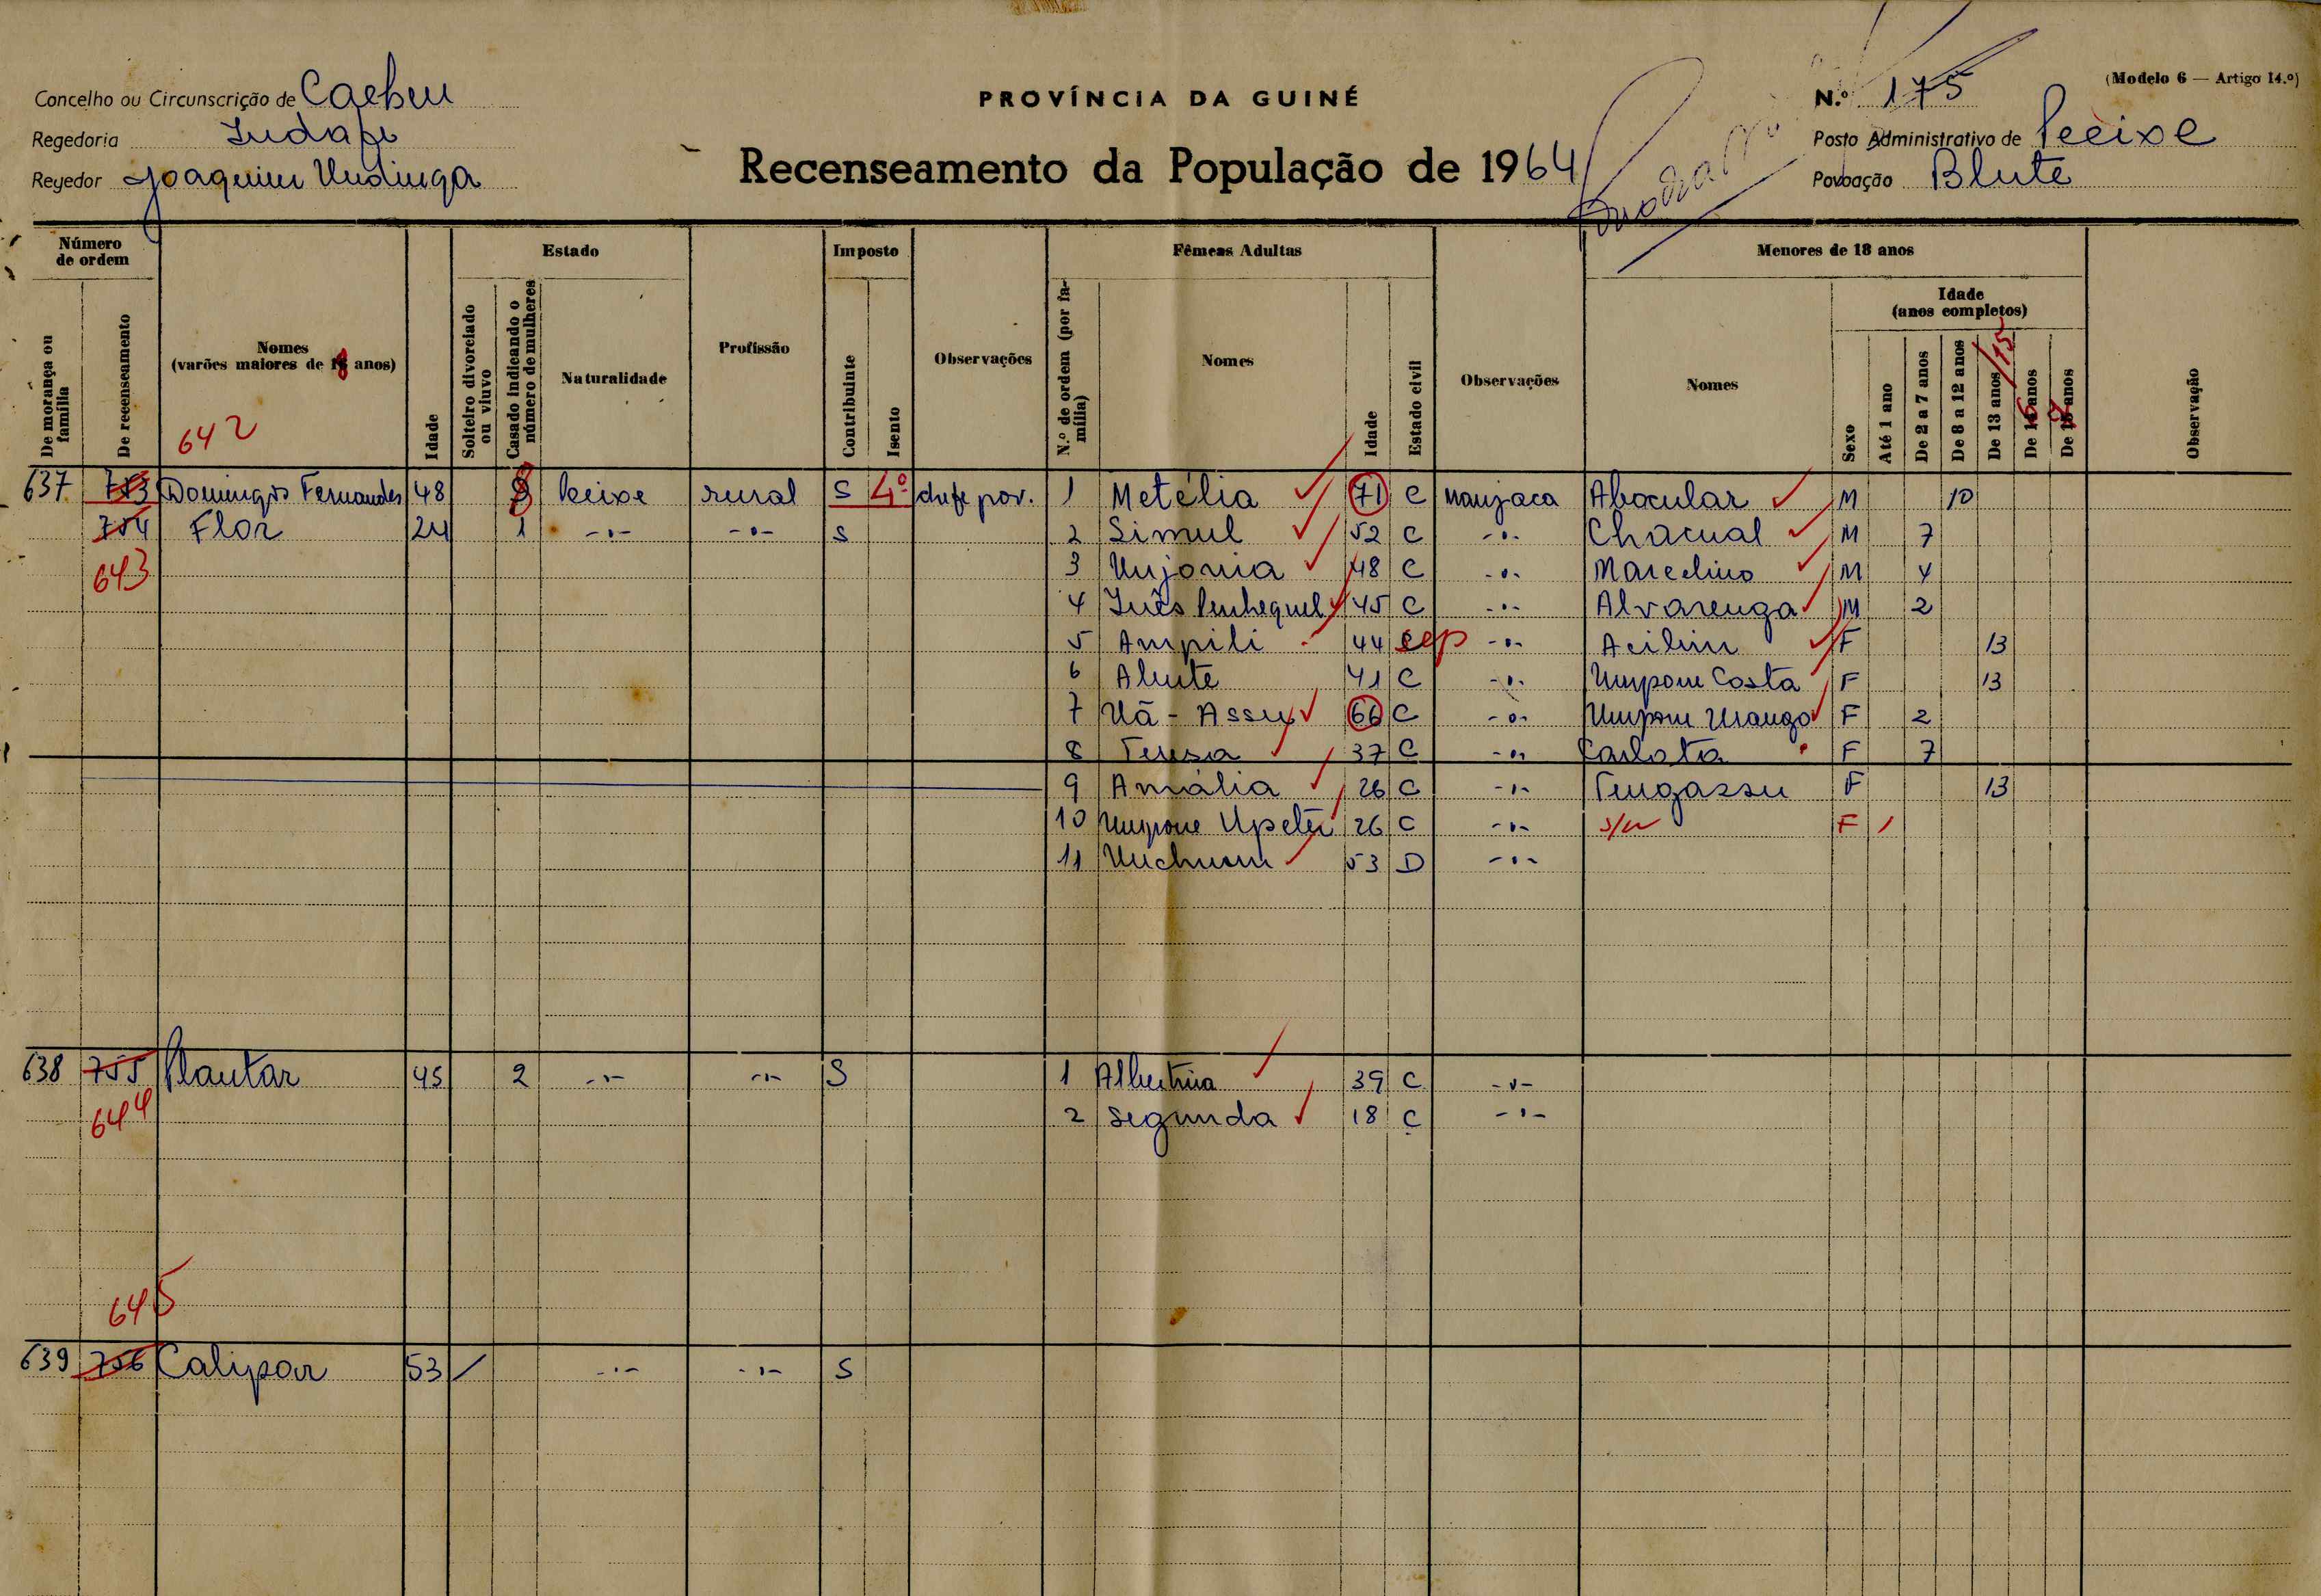 Concelho ou Circunscrição de Cacheu
PROVÍNCIA DA GUINÉ
N.º 175
(Modelo 6 — Artigo 14.º)
Regedoria
Recenseamento da População de 1964
Posto Administrativo de Pecixe
Regedor Joaquim
Povoação Blute
Número de ordem
Estado
Imposto
Fêmeas Adultas
Menores de 18 anos
De morança ou família
De recenseamento
Nomes (varões maiores de 18 anos)
Idade
Solteiro divorciado ou viuvo
Casado indicando o número de mulheres
Naturalidade
Profissão
Contribuinte
Isento
Observações
N.º de ordem (por família)
Nomes
Idade
Estado civil
Observações
Nomes
Sexo
Idade (anos completos)
Até 1 ano
De 2 a 7 anos
De 8 a 12 anos
De 13 anos /15
De 16 anos
De 17 anos
Observação
642
637 753 Domingos Fernandes 48 8 Pecixe rural S 4º chefe pov. 1 Metélia 71 C manjaca Abacular M 10
754 Flor 24 1 -"- -"- S 2 Simul 52 C -"- Chacual M 7
643 3 48 C -"- Marcelino M 4
4 Inês 45 C -"- Alvarenga M 2
5 Ampili 44 sep -"- F 13
6 41 C -"- Costa F 13
7 66 C -"- F 2
8 Teresa 37 C -"- Carlota F 7
9 Amália 26 C -"- F 13
10 26 C -"- s/n F 1
11 53 D -"-
638 755 45 2 -"- -"- S 1 Albertina 39 C -"-
644 2 Segunda 18 C -"-
645
639 756 Calipar 53 / -"- -"- S